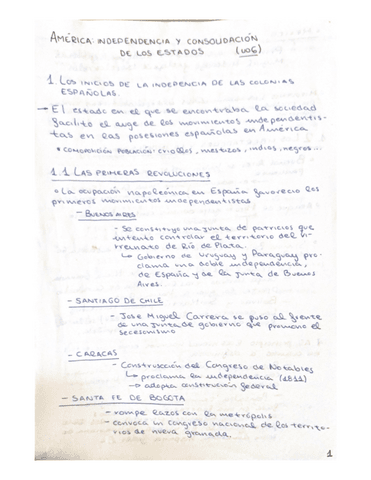 AMÉRICA: INDEPENDENCIA Y CONSOLIDACIÓN
DE LOS ESTADOS (U06)
1. LOS INICIOS DE LA INDEPENCIA DE LAS COLONIAS
ESPAÑOLAS.
→ El estado en el que se encontraba la sociedad
facilitó el auge de los movimientos independentis-
tas en las posesiones españolas en América
• COMPOSICIÓN POBLACIÓN: criollos, mestizos, indios, negros...
1.1 LAS PRIMERAS REVOLUCIONES
• La ocupación napoleónica en España favoreció los
primeros movimientos independentistas
- BUENOS AIRES
- Se constituyó una junta de patricios que
intentó controlar el territorio del vi-
rreinato de Río de Plata.
↳ Gobierno de Uruguay y Paraguay pro-
clama una doble independencia,
de España y de la Junta de Buenos
Aires.
- SANTIAGO DE CHILE
- José Miguel Carrera se puso al frente
de una junta de gobierno que promovió el
secesionismo
- CARACAS
- Construcción del Congreso de Notables
↳ proclama la independencia (1811)
→ adopta constitución federal
- SANTA FE DE BOGOTA
- rompe lazos con la metrópolis
- convoca un congreso nacional de los territo-
rios de nueva granada.
1